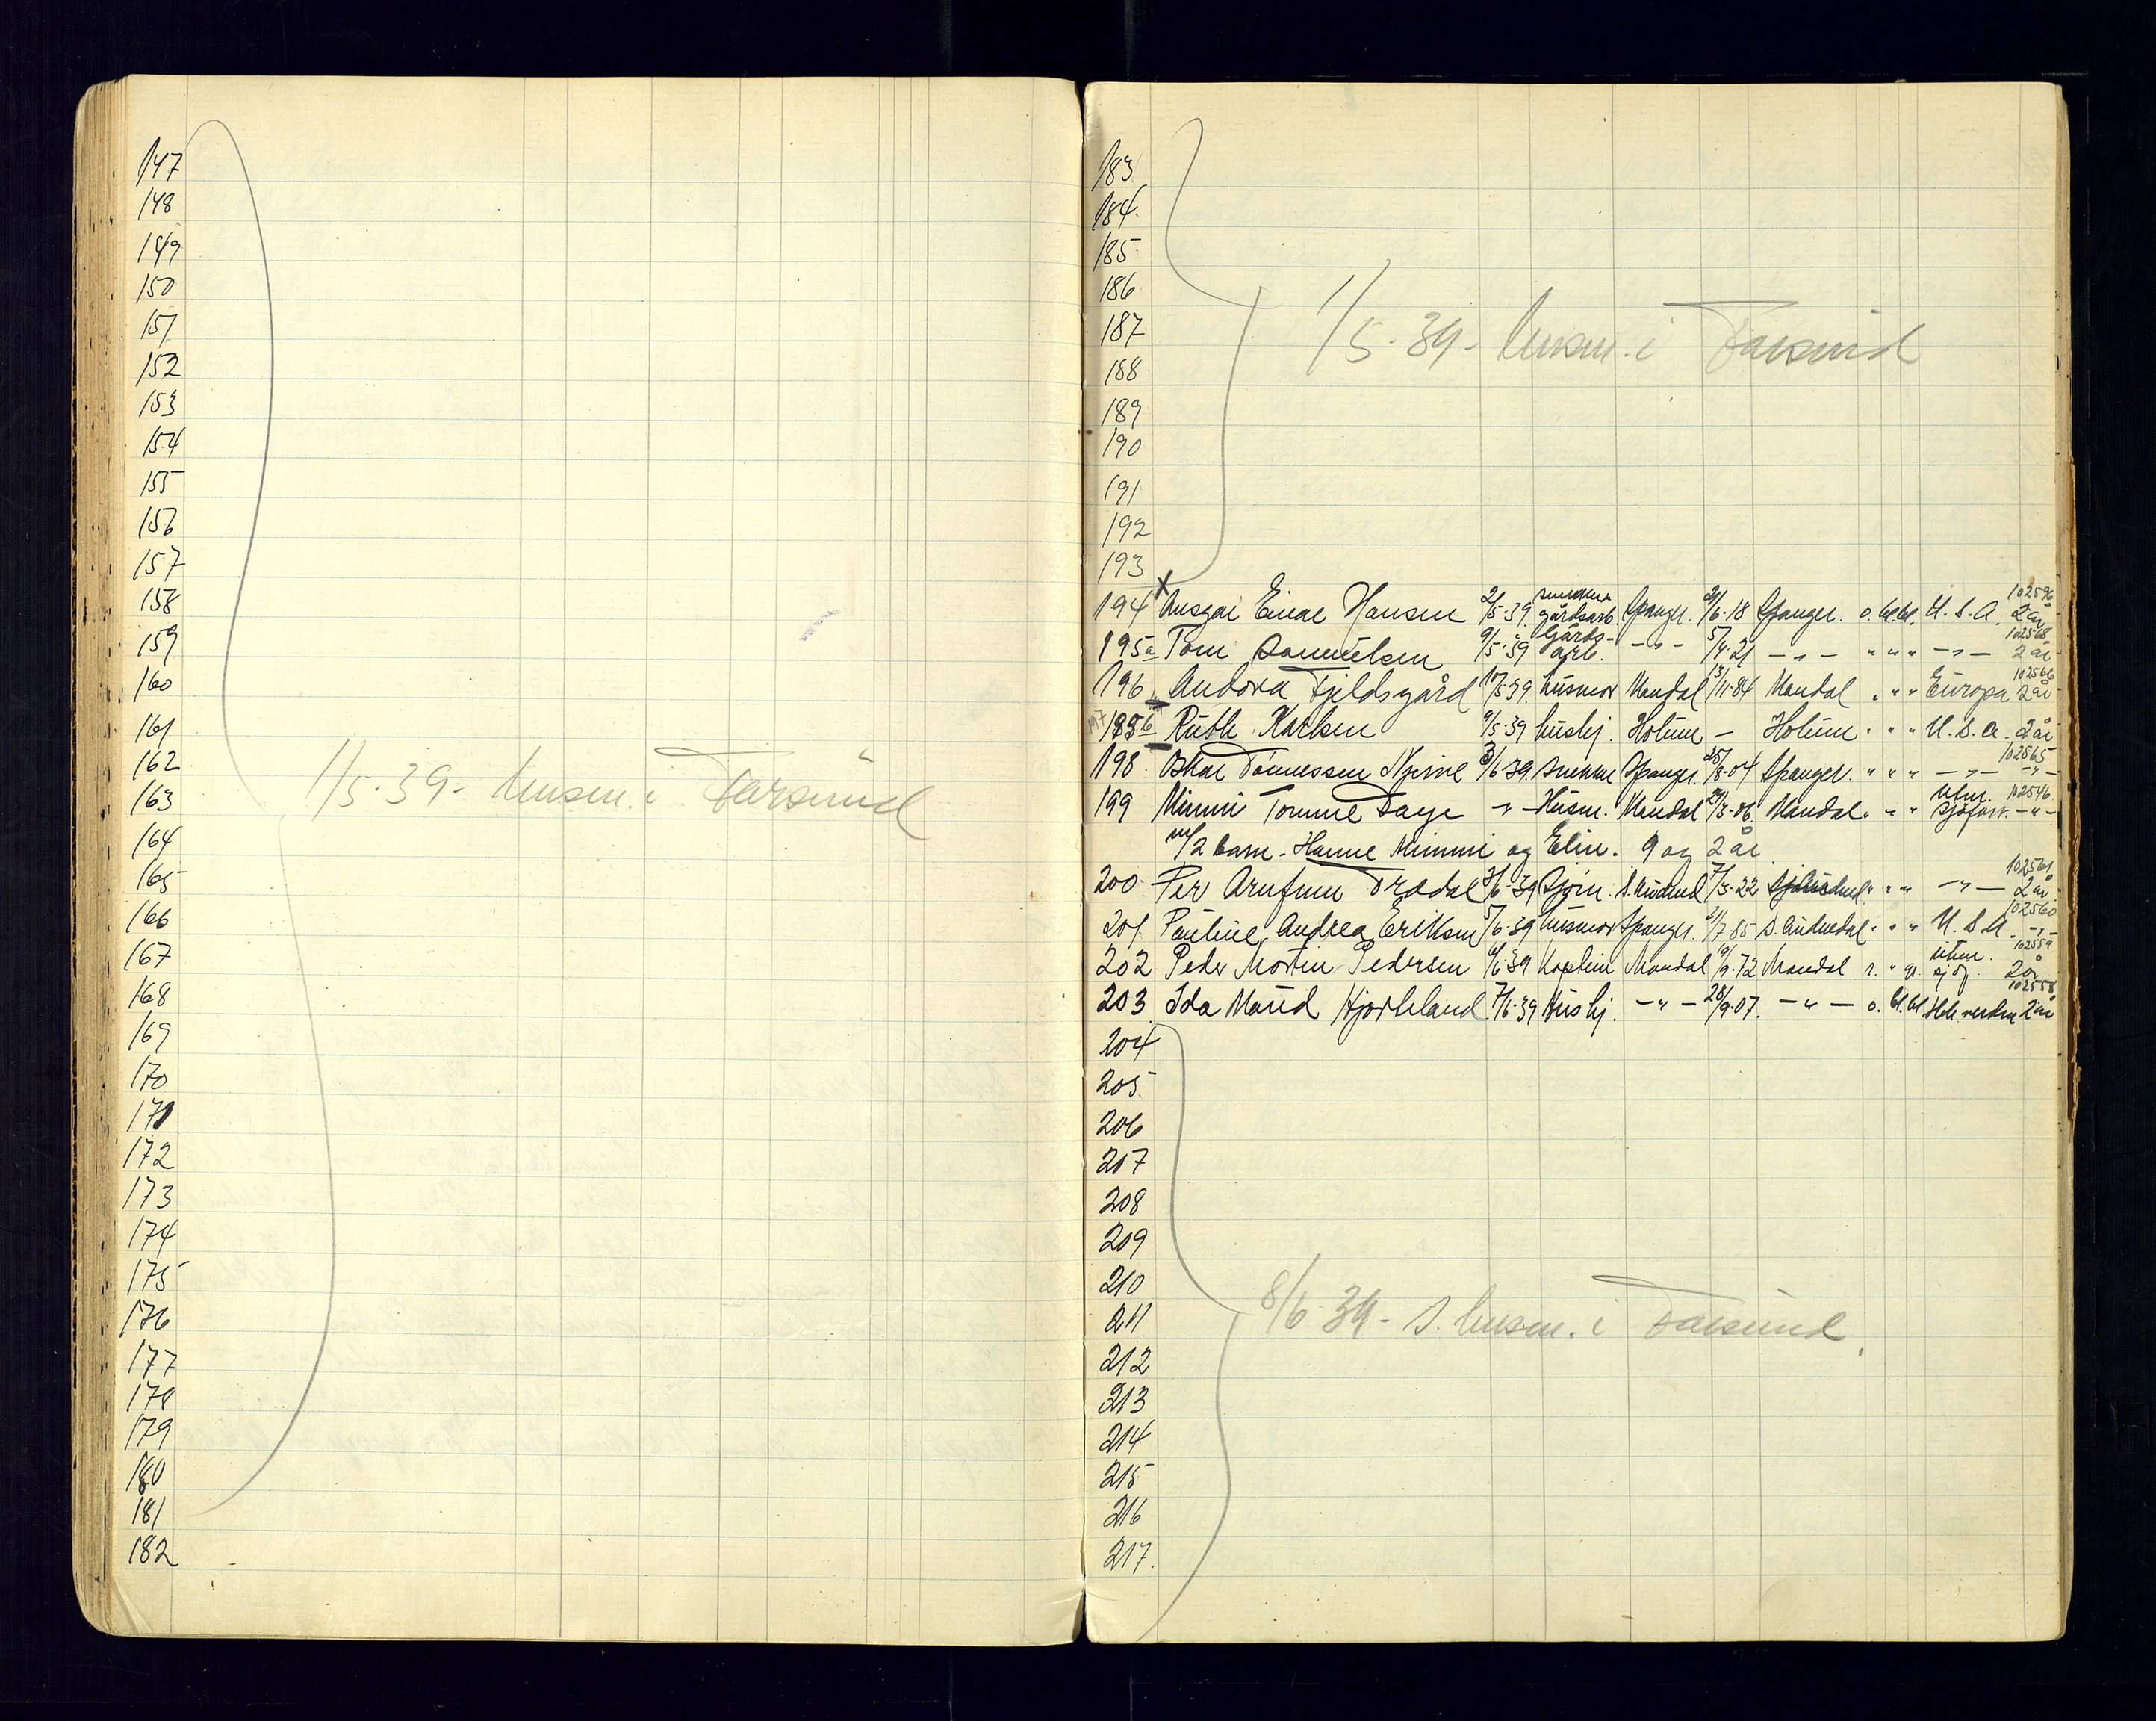 147
148
149
150
151
152
153
154
155
156
157
158
159
160
161
162
1/5-39- lensm. i Farsund
163
164
165
166
167
168
169
170
171
172
173
174
175
176
177
178
179
180
181
182
183
184
185
186
187 1/5-39- lensm. i Farsund
188
189
190
191
192
193
102596
194 x Ansgar Einar Hansen 2/5-39. gårdsarb. Spanger. /6-18 Spanger. o. bl. bl. U.S.A. 2 år
102568
195a Tom Samuelsen 9/5-39 Gårds-arb. -"- 5/4-21 -"- " " " -"- 2 år
102566
196 Andora Fjeldsgård 10/5-39. husmor Mandal 13/11-84 Mandal " " " Europa 2 år
197 195b Ruth Karlsen 9/5-39 hushj. Holum - Holum " " " U.S.A. 2 år
102565
198 Oskar Tønnessen 3/6-39. snekker Spanger. 25/8-04 Spanger. " " " -"- -"-
102546
199 Mimmi Tomine Faye -"- Husm. Mandal /3-06. Mandal " " " utenr. sjøfart. -"-
m/2 barn - Hanne Mimmi og Elin. 9 og 2 år
102561
200 Per Arnfinn Tredal 3/6-39 Sjøm. S. Audnedal 7/3-22 " " " -"- 2 år
102560
201 Pauline Andrea Eriksen 5/6-39 husmor Spanger. 21/7 85 S. Audnedal " " " U.S.A. -"-
102559
202 Peder Martin Pedersen 6/6 39 Kaptein Mandal 19/9-72 Mandal " gr. utenr. sjøf. 2 år
102558
203 Ida Maud Hjorteland 7/6-39 Hushj. -"- 28/9-07. -"- o. bl. bl. Hele verden 2 år
204
205
206
207
208
209
210
211 8/6-39- S. lensm. i Farsund
212
213
214
215
216
217.